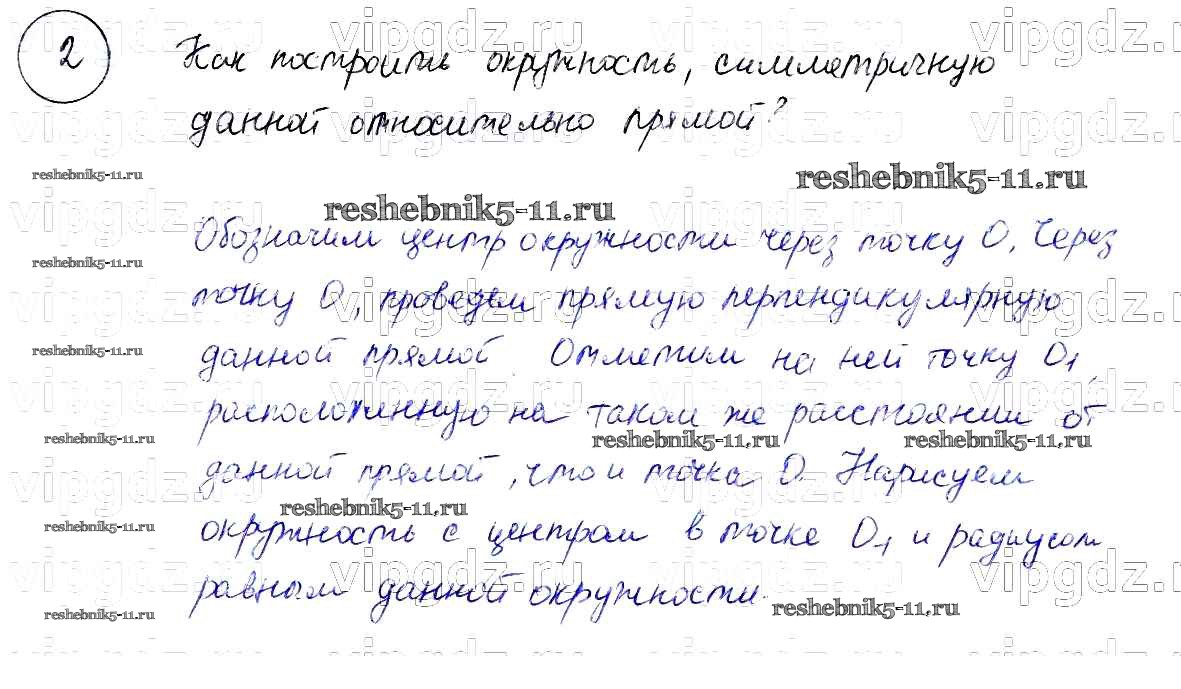 2
Как построить окружность, симметричную
данной относительно прямой?
reshebnik5-11.ru
reshebnik5-11.ru
reshebnik5-11.ru
Обозначим центр окружности через точку О. Через
reshebnik5-11.ru
точку О, проведем прямую перпендикулярную
reshebnik5-11.ru
данной прямой. Отметим на ней точку О1,
расположенную на таком же расстоянии от
reshebnik5-11.ru
reshebnik5-11.ru
reshebnik5-11.ru
данной прямой, что и точка О. Нарисуем
reshebnik5-11.ru
reshebnik5-11.ru
окружность с центром в точке О1 и радиусом
равным данной окружности.
reshebnik5-11.ru
reshebnik5-11.ru
vipgdz.ru